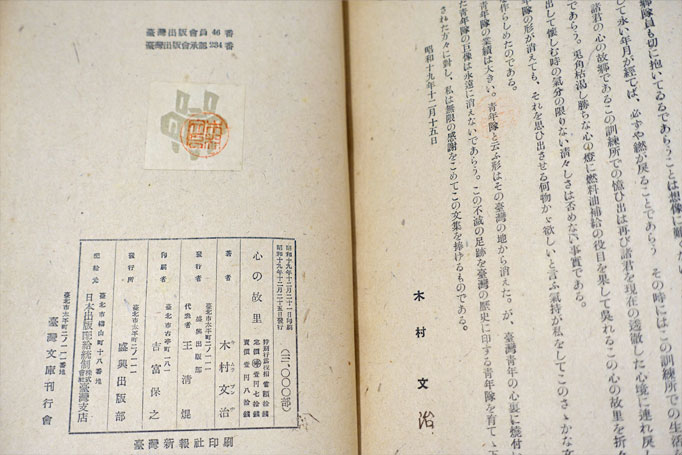 郷隊員も切に抱いてゐるであらうことは想像に難
して永い年月が經てば、必ずや繼が戻ることであらう その時にはこの訓練所での生活
諸君の心の故郷であるこの訓練所での憶ひ出は再び諸君を現在の透徹した心境に連れ戻し
であらう。兎角枯渇し勝ちな心の燈に燃料油補給の役目を果して呉れるこの心の故里を折々
出して懐しむ時の氣分の限りない清々しさは否めない事實である。
隊の形が消えても、それを思ひ出させる何物かゞ欲しいと言ふ氣持が私をしてこのさゝかな文
作らしめたのである。
青年隊の業績は大きい。青年隊と云ふ形はその臺灣の地から消えた。が、臺灣青年の心裏に燒付
た青年隊の巨像は永遠に消えないであらう。この不滅の足跡を臺灣の歴史に印する青年隊を育て
された方々に對し、私は無限の感謝をこめてこの文集を捧げるものである。
昭和十九年十二月十五日
木村文治
臺灣出版會員 46番
臺灣出版會承認 234番
昭和十九年十二月二十一日印刷
昭和十九年十二月二十五日發行
(三、〇〇〇部)
心の故里
定價 壹円七拾錢
賣價 壹円八拾錢
著者 木村文治
臺北市太平町二ノ一一
盛興出版部
發行者 代表者 王清焜
臺北市古亭町一八二
印刷者 吉富保之
臺北市太平町二ノ一一
發行所 盛興出版部
臺北市榮町十八番地
配給元 日本出版配給統制株式會社臺灣支店
臺北市太平町二ノ一一番地
臺灣文庫刊行會
臺灣新報社印刷